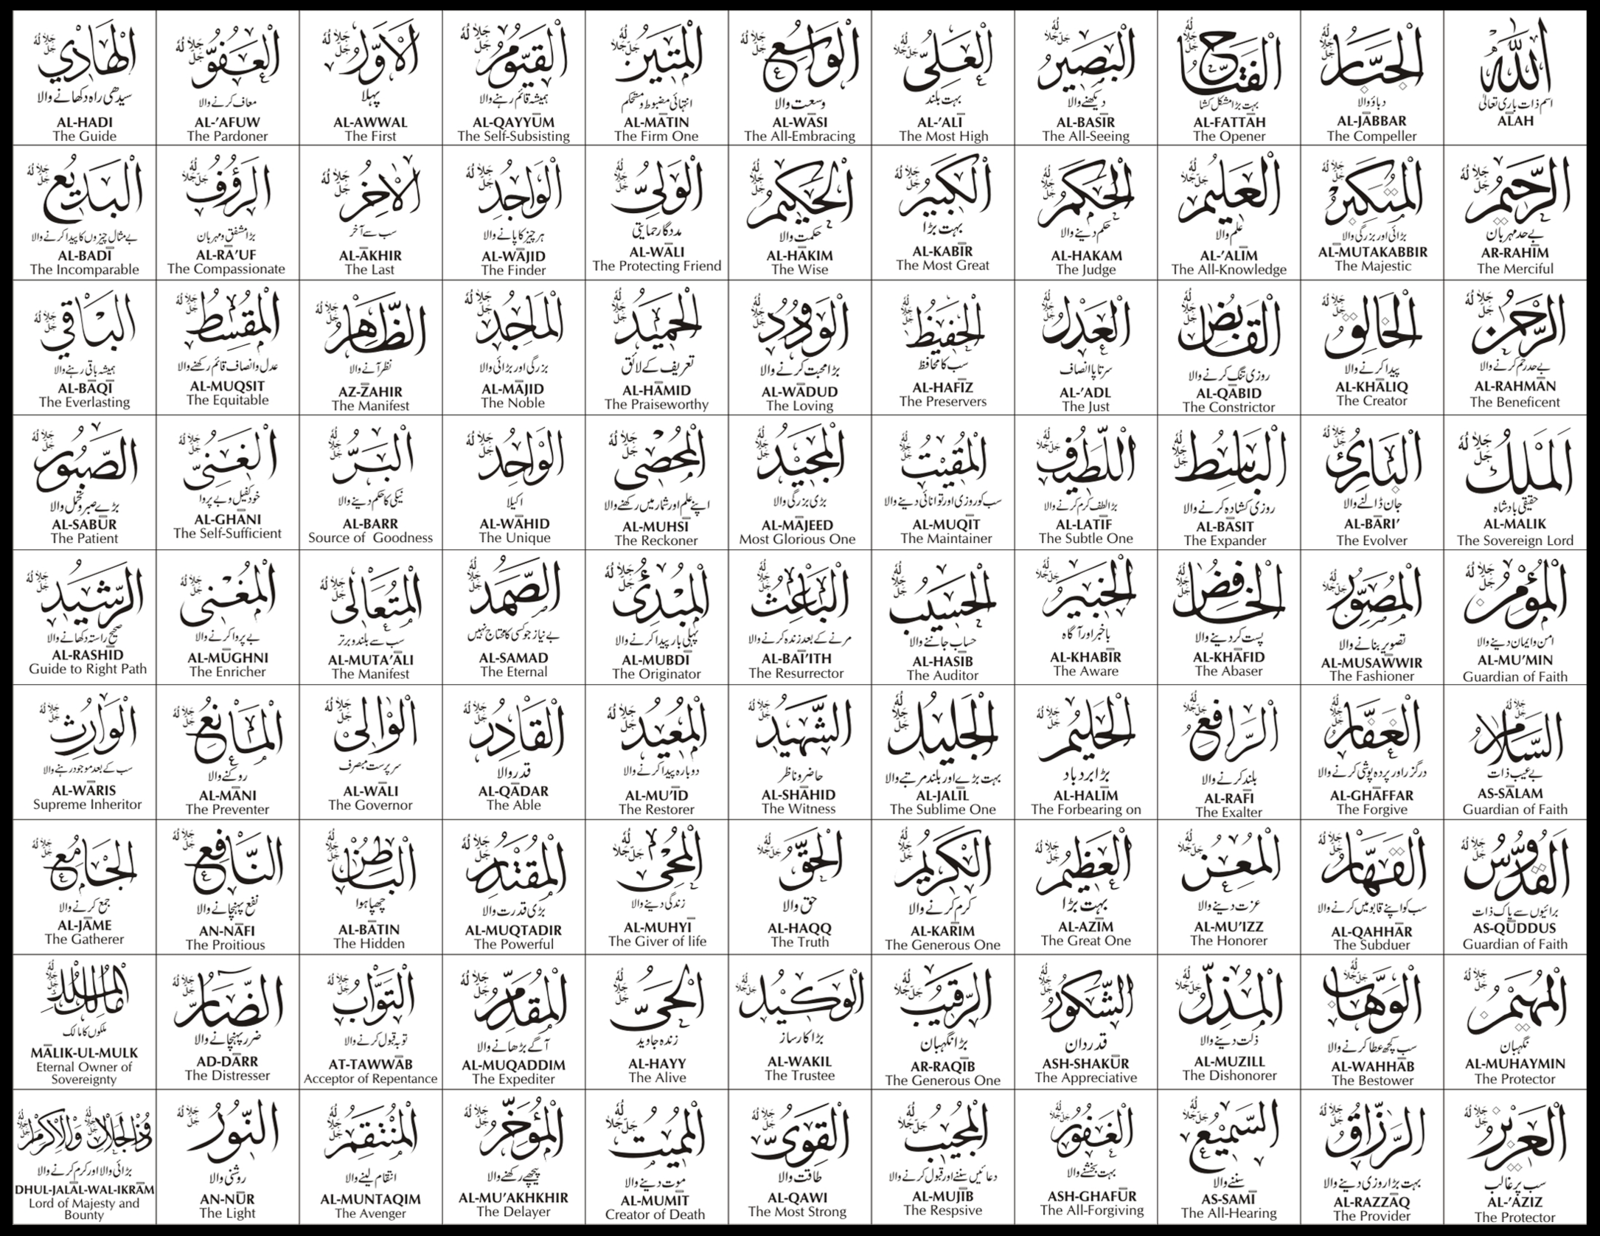 اللّٰه
اسم ذات باری تعالیٰ
ALAH
الرَّحِيْمُ جل جلاله
بے حد مہربان
AR-RAHĪM
The Merciful
الرَّحْمٰنُ جل جلاله
بے حد رحم کرنے والا
AL-RAHMĀN
The Beneficent
اَلْمَلِكُ جل جلاله
حقیقی بادشاہ
AL-MALIK
The Sovereign Lord
الْمُؤْمِنُ جل جلاله
امن و ایمان دینے والا
AL-MU’MIN
Guardian of Faith
السَّلَامُ جل جلاله
بے عیب ذات
AS-SĀLAM
Guardian of Faith
الْقُدُّوْسُ جل جلاله
برائیوں سے پاک ذات
AS-QŪDDUS
Guardian of Faith
الْمُهَيْمِنُ جل جلاله
نگہبان
AL-MUHAYMIN
The Protector
الْعَزِيْزُ جل جلاله
سب پر غالب
AL-’ĀZIZ
The Protector
الْجَبَّارُ جل جلاله
دباؤ والا
AL-JĀBBAR
The Compeller
الْمُتَكَبِّرُ جل جلاله
بڑائی اور بزرگی والا
AL-MUTAKABBIR
The Majestic
الْخَالِقُ جل جلاله
پیدا کرنے والا
AL-KHĀLIQ
The Creator
الْبَارِئُ جل جلاله
جان ڈالنے والا
AL-BĀRI’
The Evolver
الْمُصَوِّرُ جل جلاله
تصویر بنانے والا
AL-MUSAWWIR
The Fashioner
الْغَفَّارُ جل جلاله
درگزر اور پردہ پوشی کرنے والا
AL-GHĀFFAR
The Forgive
الْقَهَّارُ جل جلاله
سب کو اپنے قابو میں کرنے والا
AL-QAHHĀR
The Subduer
الْوَهَّابُ جل جلاله
سب کچھ عطا کرنے والا
AL-WAHHĀB
The Bestower
الرَّزَّاقُ جل جلاله
بہت بڑا روزی دینے والا
AL-RAZZĀQ
The Provider
الْفَتَّاحُ جل جلاله
بہت بڑا مشکل کشا
AL-FATTĀH
The Opener
الْعَلِيْمُ جل جلاله
علم والا
AL-’ALĪM
The All-Knowledge
الْقَابِضُ جل جلاله
روزی تنگ کرنے والا
AL-QĀBID
The Constrictor
الْبَاسِطُ جل جلاله
روزی کشادہ کرنے والا
AL-BĀSIT
The Expander
الْخَافِضُ جل جلاله
پست کر دینے والا
AL-KHĀFID
The Abaser
الرَّافِعُ جل جلاله
بلند کرنے والا
AL-RAFĪ
The Exalter
الْمُعِزُّ جل جلاله
عزت دینے والا
AL-MU’IZZ
The Honorer
الْمُذِلُّ جل جلاله
ذلت دینے والا
AL-MUZILL
The Dishonorer
السَّمِيْعُ جل جلاله
سننے والا
AS-SAMĪ
The All-Hearing
الْبَصِيْرُ جل جلاله
دیکھنے والا
AL-BASĪR
The All-Seeing
الْحَكَمُ جل جلاله
حکم دینے والا
AL-HAKAM
The Judge
الْعَدْلُ جل جلاله
سرتاپا انصاف
AL-’ADL
The Just
اللَّطِيْفُ جل جلاله
بڑا لطف کرم کرنے والا
AL-LATĪF
The Subtle One
الْخَبِيْرُ جل جلاله
باخبر اور آگاہ
AL-KHABĪR
The Aware
الْحَلِيْمُ جل جلاله
بڑا بردباد
AL-HALĪM
The Forbearing on
الْعَظِيْمُ جل جلاله
بہت بڑا
AL-AZĪM
The Great One
الشَّكُوْرُ جل جلاله
قدردان
ASH-SHAKŪR
The Appreciative
الْغَفُوْرُ جل جلاله
بہت بخشنے والا
ASH-GHAFŪR
The All-Forgiving
الْعَلِىُّ جل جلاله
بہت بلند
AL-’ALĪ
The Most High
الْكَبِيْرُ جل جلاله
بہت بڑا
AL-KABĪR
The Most Great
الْحَفِيْظُ جل جلاله
سب کا محافظ
AL-HAFĪZ
The Preservers
الْمُقِيْتُ جل جلاله
سب کو روزی اور توانائی دینے والا
AL-MUQĪT
The Maintainer
الْحَسِيْبُ جل جلاله
حساب جاننے والا
AL-HASĪB
The Auditor
الْجَلِيْلُ جل جلاله
بہت بڑے اور بلند مرتبے والا
AL-JALĪL
The Sublime One
الْكَرِيْمُ جل جلاله
کرم کرنے والا
AL-KARĪM
The Generous One
الرَّقِيْبُ جل جلاله
بڑا نگہبان
AR-RAQĪB
The Generous One
الْمُجِيْبُ جل جلاله
دعائیں سننے اور قبول کرنے والا
AL-MUJĪB
The Respsive
الْوَاسِعُ جل جلاله
وسعت والا
AL-WĀSI
The All-Embracing
الْحَكِيْمُ جل جلاله
حکمت والا
AL-HĀKIM
The Wise
الْوَدُوْدُ جل جلاله
بڑا محبت کرنے والا
AL-WĀDUD
The Loving
الْمَجِيْدُ جل جلاله
بڑی بزرگی والا
AL-MĀJEED
Most Glorious One
الْبَاعِثُ جل جلاله
مرنے کے بعد زندہ کرنے والا
AL-BAĪ’ITH
The Resurrector
الشَّهِيْدُ جل جلاله
حاضر و ناظر
AL-SHĀHID
The Witness
الْحَقُّ جل جلاله
حق والا
AL-HAQQ
The Truth
الْوَكِيْلُ جل جلاله
بڑا کارساز
AL-WAKIL
The Trustee
الْقَوِىُّ جل جلاله
طاقت والا
AL-QAWI
The Most Strong
الْمَتِيْنُ جل جلاله
انتہائی مضبوط و مستحکم
AL-MĀTIN
The Firm One
الْوَلِىُّ جل جلاله
مددگار حمایتی
AL-WĀLI
The Protecting Friend
الْحَمِيْدُ جل جلاله
تعریف کے لائق
AL-HĀMID
The Praiseworthy
الْمُحْصِى جل جلاله
اپنے علم اور شمار میں رکھنے والا
AL-MUHSĪ
The Reckoner
الْمُبْدِئُ جل جلاله
پہلی بار پیدا کرنے والا
AL-MUBDĪ
The Originator
الْمُعِيْدُ جل جلاله
دوبارہ پیدا کرنے والا
AL-MU’ĪD
The Restorer
الْمُحْىِ جل جلاله
زندگی دینے والا
AL-MUHYĪ
The Giver of life
الْحَىُّ جل جلاله
زندہ جاوید
AL-HAYY
The Alive
الْمُمِيْتُ جل جلاله
موت دینے والا
AL-MUMĪT
Creator of Death
الْقَيُّوْمُ جل جلاله
ہمیشہ قائم رہنے والا
AL-QAYYŪM
The Self-Subsisting
الْوَاجِدُ جل جلاله
ہر چیز کا پانے والا
AL-WĀJID
The Finder
الْمَاجِدُ جل جلاله
بزرگی اور بڑائی والا
AL-MĀJID
The Noble
الْوَاحِدُ جل جلاله
اکیلا
AL-WĀHID
The Unique
الصَّمَدُ جل جلاله
بے نیاز جو کسی کا محتاج نہیں
AL-SAMAD
The Eternal
الْقَادِرُ جل جلاله
قدر والا
AL-QĀDAR
The Able
الْمُقْتَدِرُ جل جلاله
بڑی قدرت والا
AL-MUQTADIR
The Powerful
الْمُقَدِّمُ جل جلاله
آگے بڑھانے والا
AL-MUQADDIM
The Expediter
الْمُؤَخِّرُ جل جلاله
پیچھے رکھنے والا
AL-MU’AKHKHIR
The Delayer
الْاَوَّلُ جل جلاله
پہلا
AL-AWWAL
The First
الْاٰخِرُ جل جلاله
سب سے آخر
AL-ĀKHIR
The Last
الظَّاهِرُ جل جلاله
نظر آنے والا
AZ-ZĀHIR
The Manifest
الْبَرُّ جل جلاله
نیکی کا حکم دینے والا
AL-BARR
Source of Goodness
الْمُتَعَالِى جل جلاله
سب سے بلند و برتر
AL-MUTA’ĀLI
The Manifest
الْوَالِى جل جلاله
سرپرست متصرف
AL-WĀLI
The Governor
الْبَاطِنُ جل جلاله
چھپا ہوا
AL-BĀTIN
The Hidden
التَّوَّابُ جل جلاله
توبہ قبول کرنے والا
AT-TAWWĀB
Acceptor of Repentance
الْمُنْتَقِمُ جل جلاله
انتقام لینے والا
AL-MUNTAQIM
The Avenger
الْعَفُوُّ جل جلاله
معاف کرنے والا
AL-’AFUW
The Pardoner
الرَّؤُفُ جل جلاله
بڑا مشفق و مہربان
AL-RA’UF
The Compassionate
الْمُقْسِطُ جل جلاله
عدل و انصاف قائم رکھنے والا
AL-MUQSIT
The Equitable
الْغَنِىُّ جل جلاله
خود کفیل و بے پروا
AL-GHANI
The Self-Sufficient
الْمُغْنِى جل جلاله
بے پروا کرنے والا
AL-MŪGHNI
The Enricher
الْمَانِعُ جل جلاله
روکنے والا
AL-MĀNI
The Preventer
النَّافِعُ جل جلاله
نفع پہنچانے والا
AN-NĀFI
The Proitious
الضَّارُّ جل جلاله
ضرر پہنچانے والا
AD-DĀRR
The Distresser
النُّوْرُ جل جلاله
روشنی والا
AN-NŪR
The Light
الْهَادِي جل جلاله
سیدھی راہ دکھانے والا
AL-HADI
The Guide
الْبَدِيْعُ جل جلاله
بے مثال چیزوں کا پیدا کرنے والا
AL-BADĪ
The Incomparable
الْبَاقِي جل جلاله
ہمیشہ باقی رہنے والا
AL-BĀQĪ
The Everlasting
الصَّبُوْرُ جل جلاله
بڑے صبر و تحمل والا
AL-SABŪR
The Patient
الرَّشِيْدُ جل جلاله
صحیح راستہ دکھانے والا
AL-RASHĪD
Guide to Right Path
الْوَارِثُ جل جلاله
سب کے بعد موجود رہنے والا
AL-WĀRIS
Supreme Inheritor
الْجَامِعُ جل جلاله
جمع کرنے والا
AL-JĀME
The Gatherer
مَالِكُ الْمُلْكِ جل جلاله
ملکوں کا مالک
MĀLIK-UL-MULK
Eternal Owner of
Sovereignty
ذُو الْجَلَالِ وَالْاِكْرَامِ جل جلاله
بڑائی والا اور کرم کرنے والا
DHUL-JALĀL-WAL-IKRĀM
Lord of Majesty and
Bounty